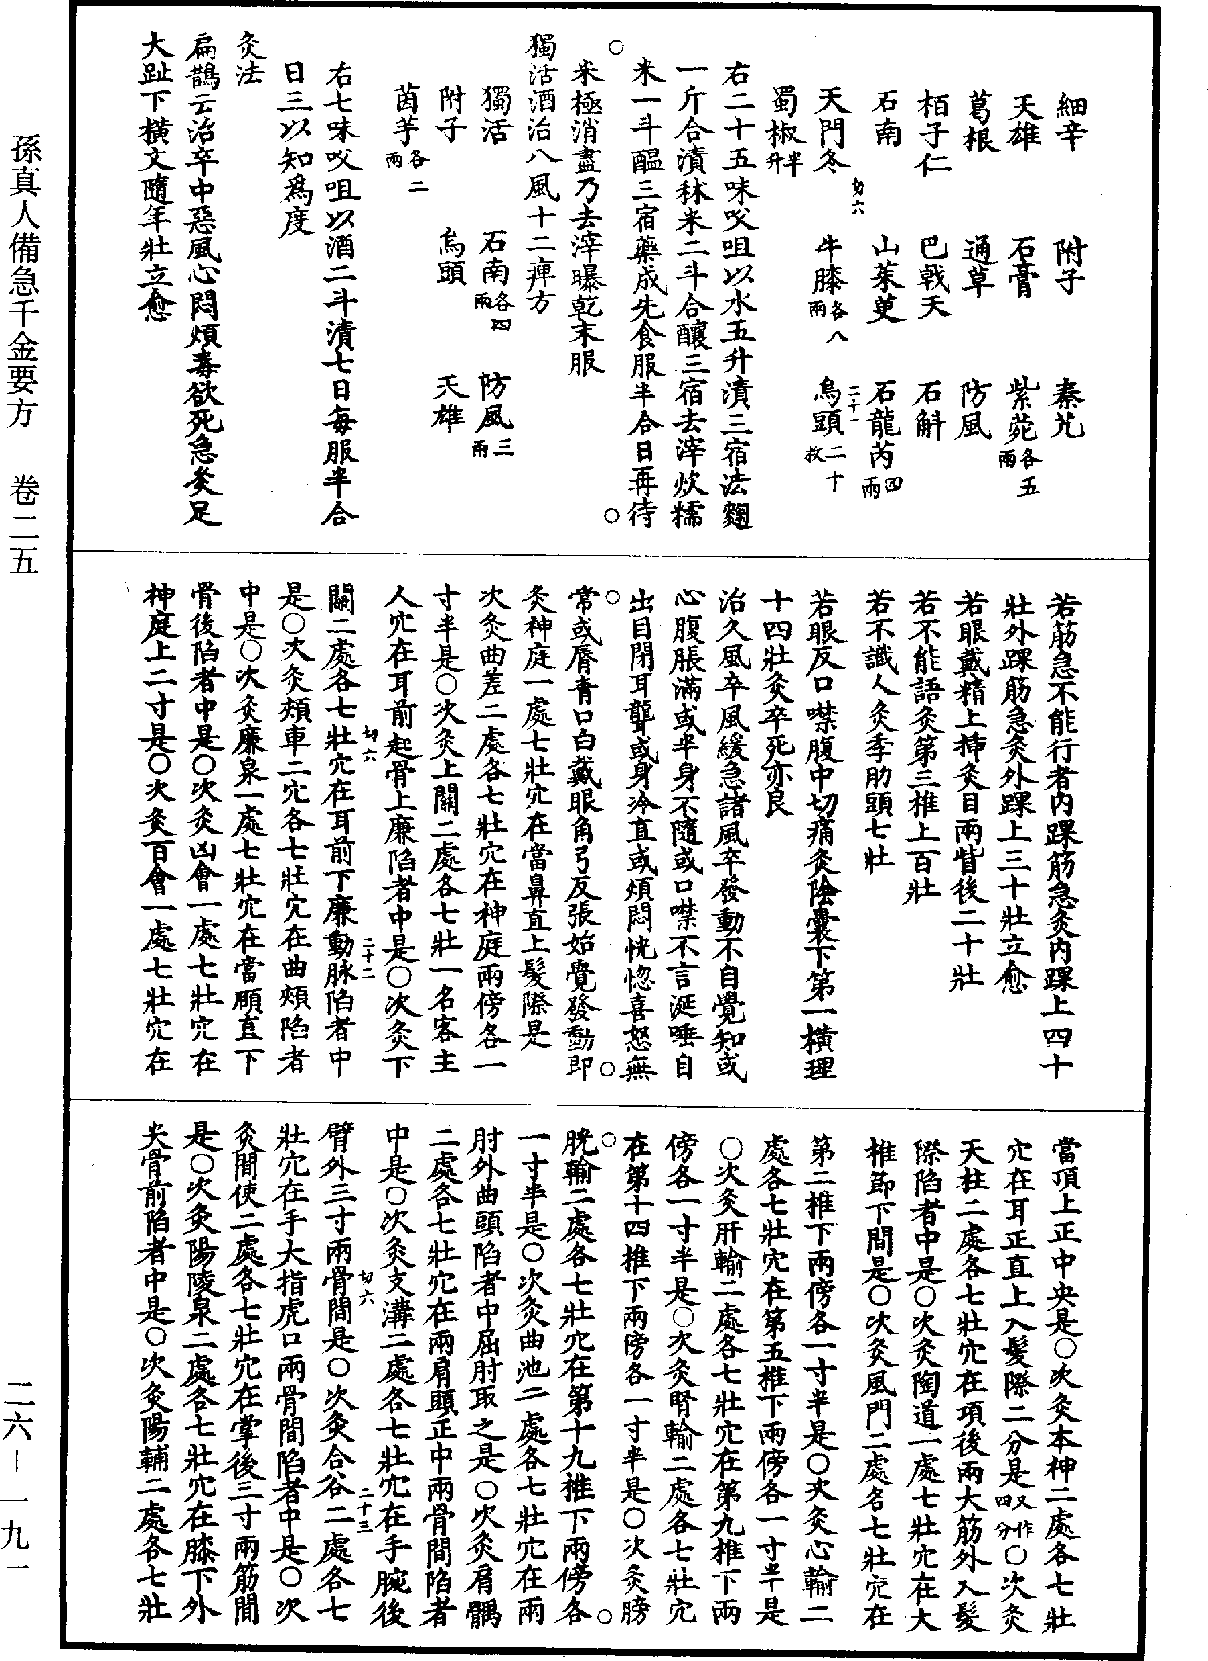 細辛　附子　秦艽
天雄　石膏　紫菀各五兩
葛根　通草　防風
栢子仁　巴戟天　石斛
石南　山茱萸　石龍芮四兩
天門冬　牛膝各八兩　烏頭二十枚
蜀椒半升
右二十五味㕮咀以水五升漬三宿法麴
一斤合漬秫米二斗合釀三宿去滓炊糯
米一斗醖三宿藥成先食服半合日再待
米極消盡乃去滓曝乾末服
獨活酒治八風十二痹方
獨活　石南各四兩　防風三兩
附子　烏頭　天雄
茵芋各二兩
右七味㕮咀以酒二斗漬七日每服半合
日三以知爲度
灸法
扁鵲云治卒中惡風心悶煩毒欲死急灸足
大趾下橫文隨年壯立愈
若筋急不能行者內踝筋急灸內踝上四十
壯外踝筋急灸外踝上三十壯立愈
若眼戴精上揷灸目兩眥後二十壯
若不能語灸第三椎上百壯
若不識人灸季肋頭七壯
若眼反口噤腹中切痛灸陰囊下第一橫理
十四壯灸卒死亦良
治久風卒風緩急諸風卒發動不自覺知或
心腹脹滿或半身不隨或口噤不言涎唾自
出目閉耳聾或身冷直或煩悶恍惚喜怒無
常或脣青口白戴眼角弓反張始覺發動即
灸神庭一處七壯穴在當鼻直上髮際是
次灸曲差二處各七壯穴在神庭兩傍各一
寸半是○次灸上關二處各七壯一名客主
人穴在耳前起骨上廉陷者中是○次灸下
關二處各七壯穴在耳前下廉動脉陷者中
是○次灸頰車二穴各七壯穴在曲頰陷者
中是○次灸廉泉一處七壯穴在當頤直下
骨後陷者中是○次灸囟會一處七壯穴在
神庭上二寸是○次灸百會一處七壯穴在
當頂上正中央是○次灸本神二處各七壯
穴在耳正直上入髮際二分是又作四分○次灸
天柱二處各七壯穴在項後兩大筋外入髮
際陷者中是○次灸陶道一處七壯穴在大
椎節下間是○次灸風門二處各七壯穴在
第二椎下兩傍各一寸半是○次灸心輸二
處各七壯穴在第五椎下兩傍各一寸半是
○次灸肝輸二處各七壯穴在第九椎下兩
傍各一寸半是○次灸腎輸二處各七壯穴
在第十四椎下兩傍各一寸半是○次灸膀
胱輸二處各七壯穴在第十九椎下兩傍各
一寸半是○次灸曲池二處各七壯穴在兩
肘外曲頭陷者中屈肘取之是○次灸肩髃
二處各七壯穴在兩肩頭正中兩骨間陷者
中是○次灸支溝二處各七壯穴在手腕後
臂外三寸兩骨間是○次灸合谷二處各七
壯穴在手大指虎口兩骨間陷者中是○次
灸間使二處各七壯穴在掌後三寸兩筋間
是○次灸陽陵泉二處各七壯穴在膝下外
尖骨前陷者中是○次灸陽輔二處各七壯
孫真人備急千金要方　卷二五
二六－一九一